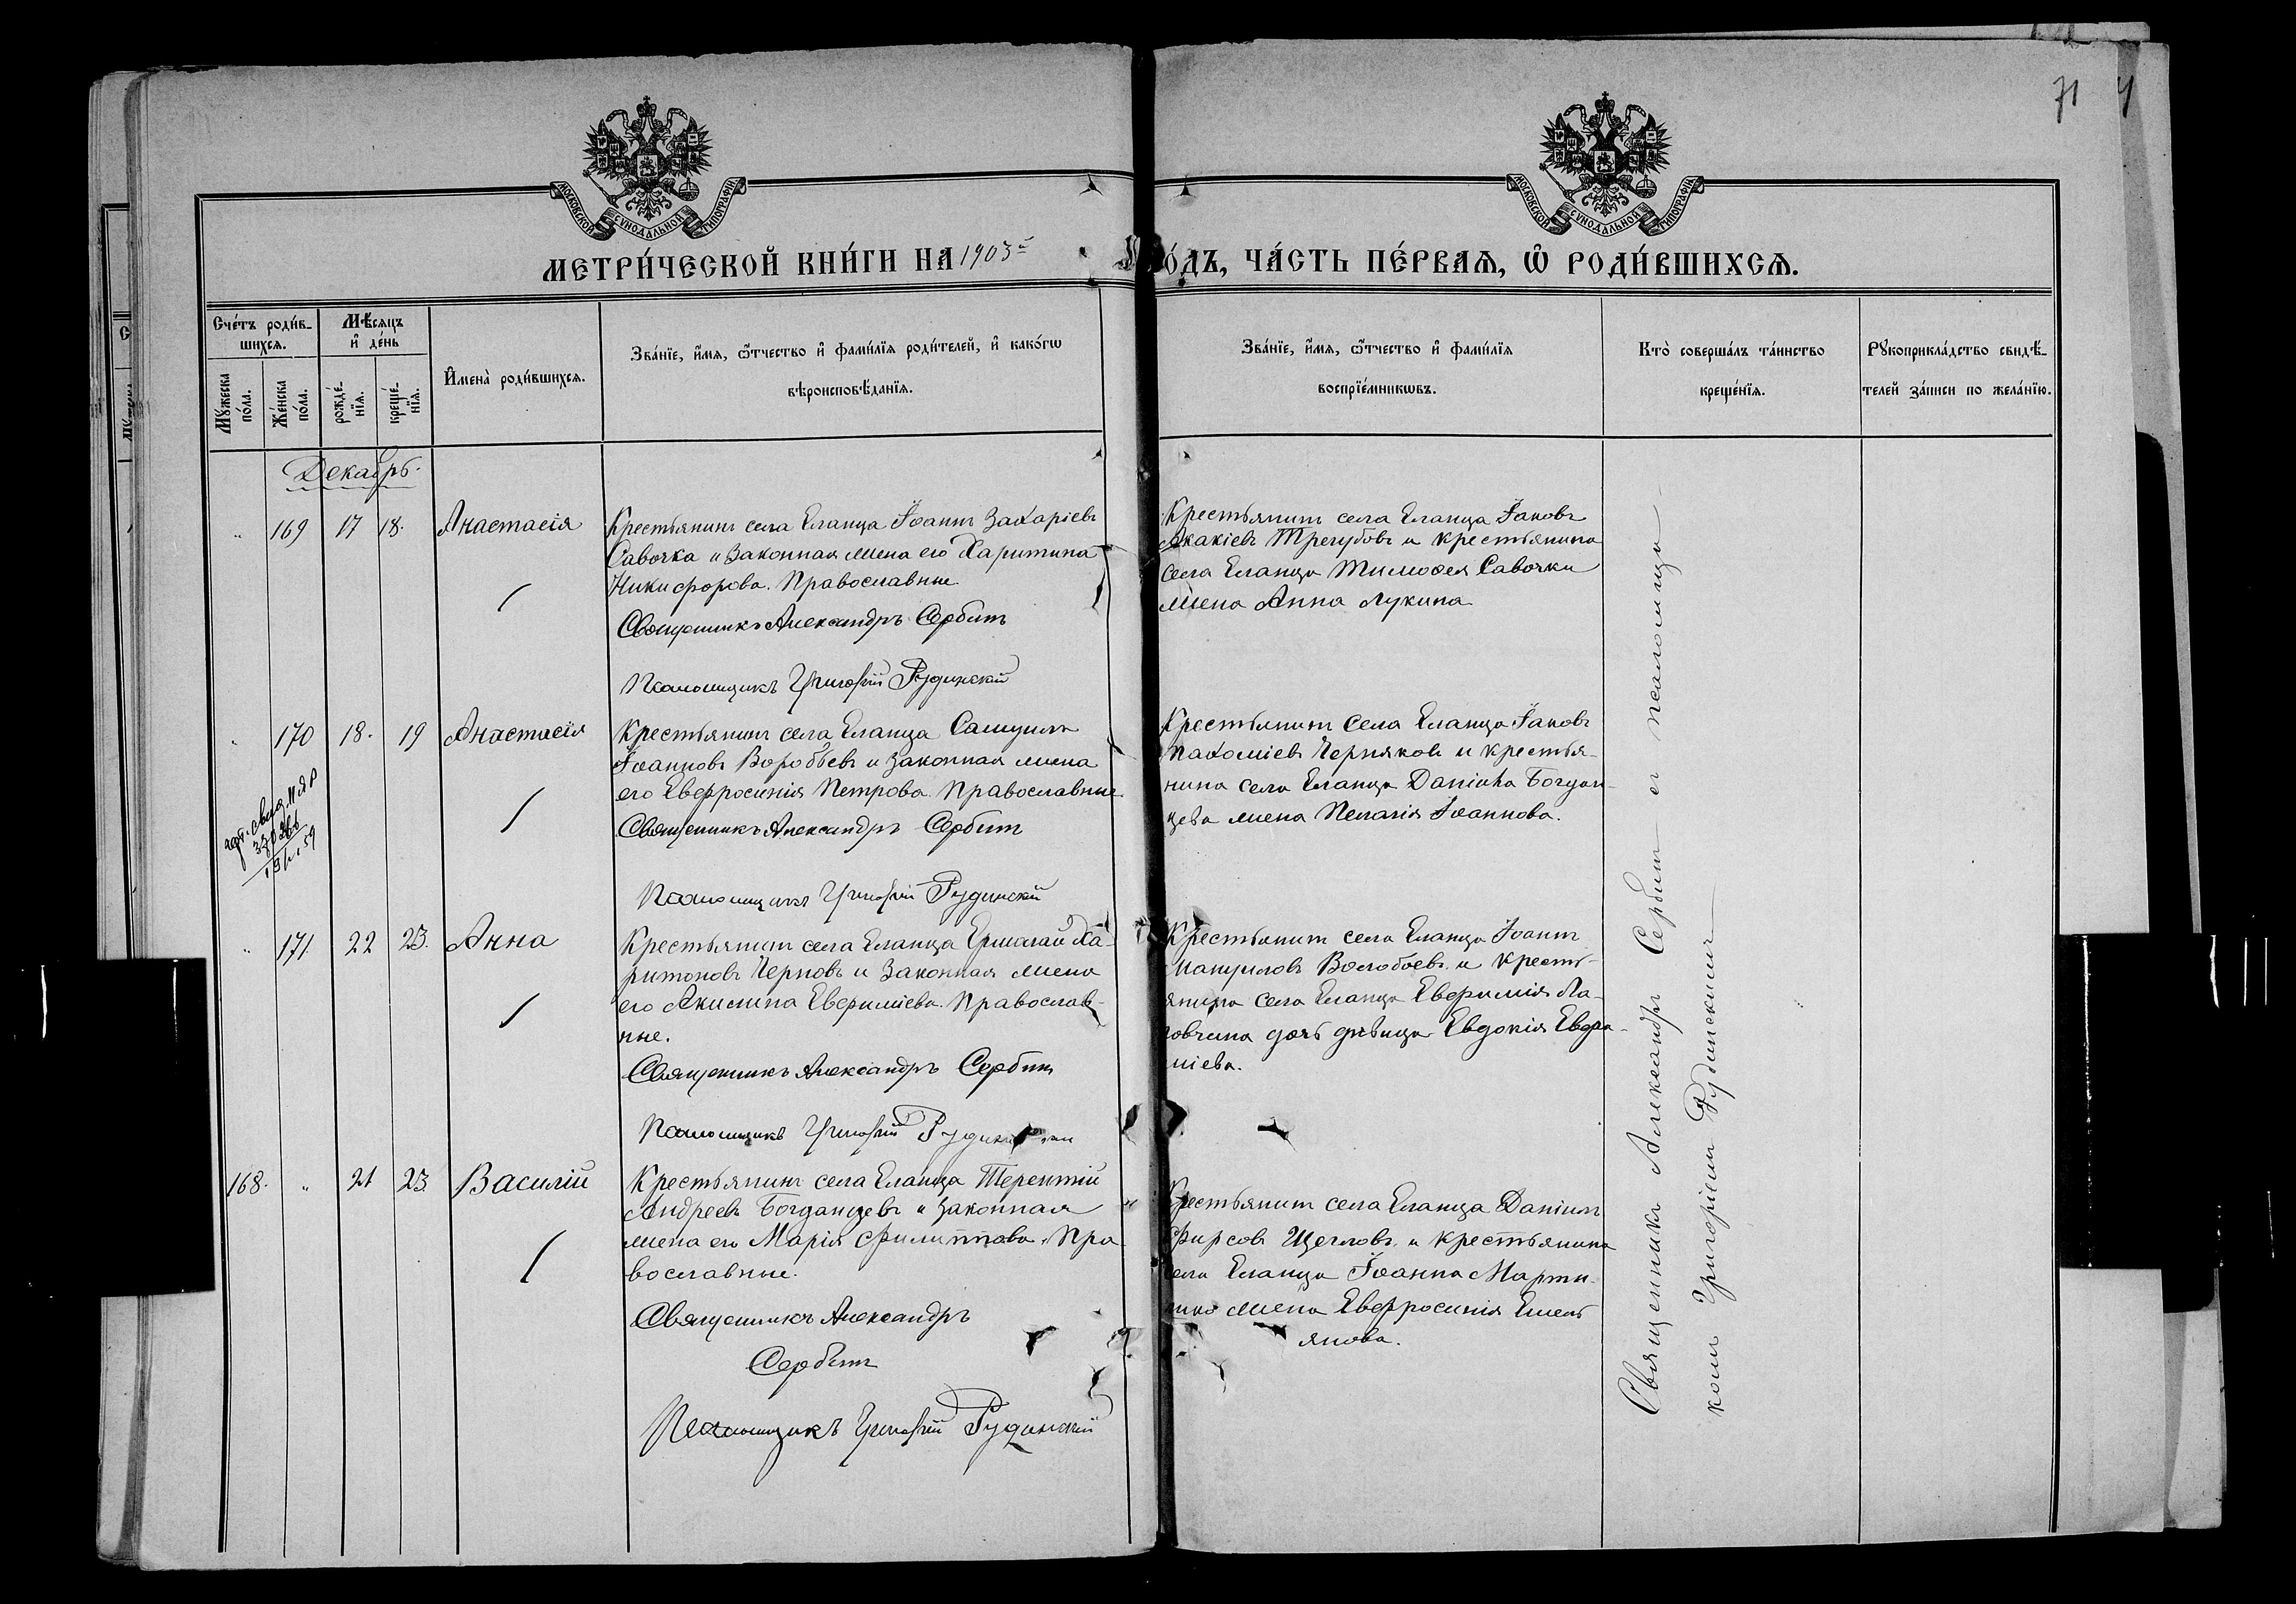 71
МОСКОВСКОЙ СѴНОДАЛЬНОЙ ТИПОГРАФІИ
МОСКОВСКОЙ СѴНОДАЛЬНОЙ ТИПОГРАФІИ
МЕТРИ́ЧЕСКОЙ КНИ́ГИ НА 1903й
ГО́ДЪ, ЧА́СТЬ ПЕ́РВАѦ, Ѡ҆ РОДИ́ВШИХСѦ.
Сче́тъ роди́в-
шихсѧ.
Мꙋ́жеска
по́ла.
Же́нска
по́ла.
Мѣ́сѧцъ
и҆ де́нь
рожде́-
нїѧ.
креще́-
нїѧ.
И҆мена̀ роди́вшихсѧ.
Зва́нїе, и҆́мѧ, ѻ҆́тчество и҆ фами́лїѧ роди́телей, и҆ како́гѡ
вѣроисповѣ́данїѧ.
Зва́нїе, и҆́мѧ, ѻ҆́тчество и҆ фами́лїѧ
воспрїе́мникѡвъ.
Кто̀ соверша́лъ та́инство
креще́нїѧ.
Рꙋкоприкла́дство свидѣ́-
телей за́писи по жела́нїю.
Декабрь.
„ 169 17 18. Анастасія
Крестьянинъ села Еланца Іоаннъ Захаріевъ
Савочка и законная жена его Харитина
Никифорова. Православные
Священникъ Александръ Сербинъ
Псаломщикъ Григорій Рудинскій
Крестьянинъ села Еланца Іаковъ
Акакіевъ Трегубовъ и крестьянина
села Еланца Тимофея Савочки
жена Анна Лукина
170 18. 19 Анастасія
Крестьянинъ села Еланца Самуилъ
Іоанновъ Воробьевъ и законная жена
его Евфросинія Петрова. Православные
Священникъ Александръ Сербинъ
Псаломщикъ Григорій Рудинскій
Крестьянинъ села Еланца Іаковъ
Пахоміевъ Черняковъ и крестья-
нина села Еланца Даніила Богдан-
цева жена Пелагія Іоаннова.
„ 171. 22 23. Анна
Крестьянинъ села Еланца Ермолай Ха-
ритоновъ Черновъ и законная жена
его Акилина Евфиміева. Православ-
ные.
Священникъ Александръ Сербинъ
Псаломщикъ Григорій
Крестьянинъ села Еланца Іоаннъ
Мануиловъ и кресть-
янина села Еланца Евфимія
дочь дѣвица Евдокія Евфи-
міева.
168. „ 21 23. Василій
Крестьянинъ села Еланца Терентій
Андреевъ Богданцевъ и законная
жена его Марія Филиппова. Пра
вославные.
Священникъ Александръ
Сербинъ
Псаломщикъ Григорій Рудинскій
Крестьянинъ села Еланца Даніилъ
Фирсовъ Щегловъ и крестьянина
села Еланца Іоанна Марти-
жена Евфросинія Емель
янова.
Священникъ Александръ Сербинъ съ псаломщи
комъ Григоріемъ Рудинскимъ